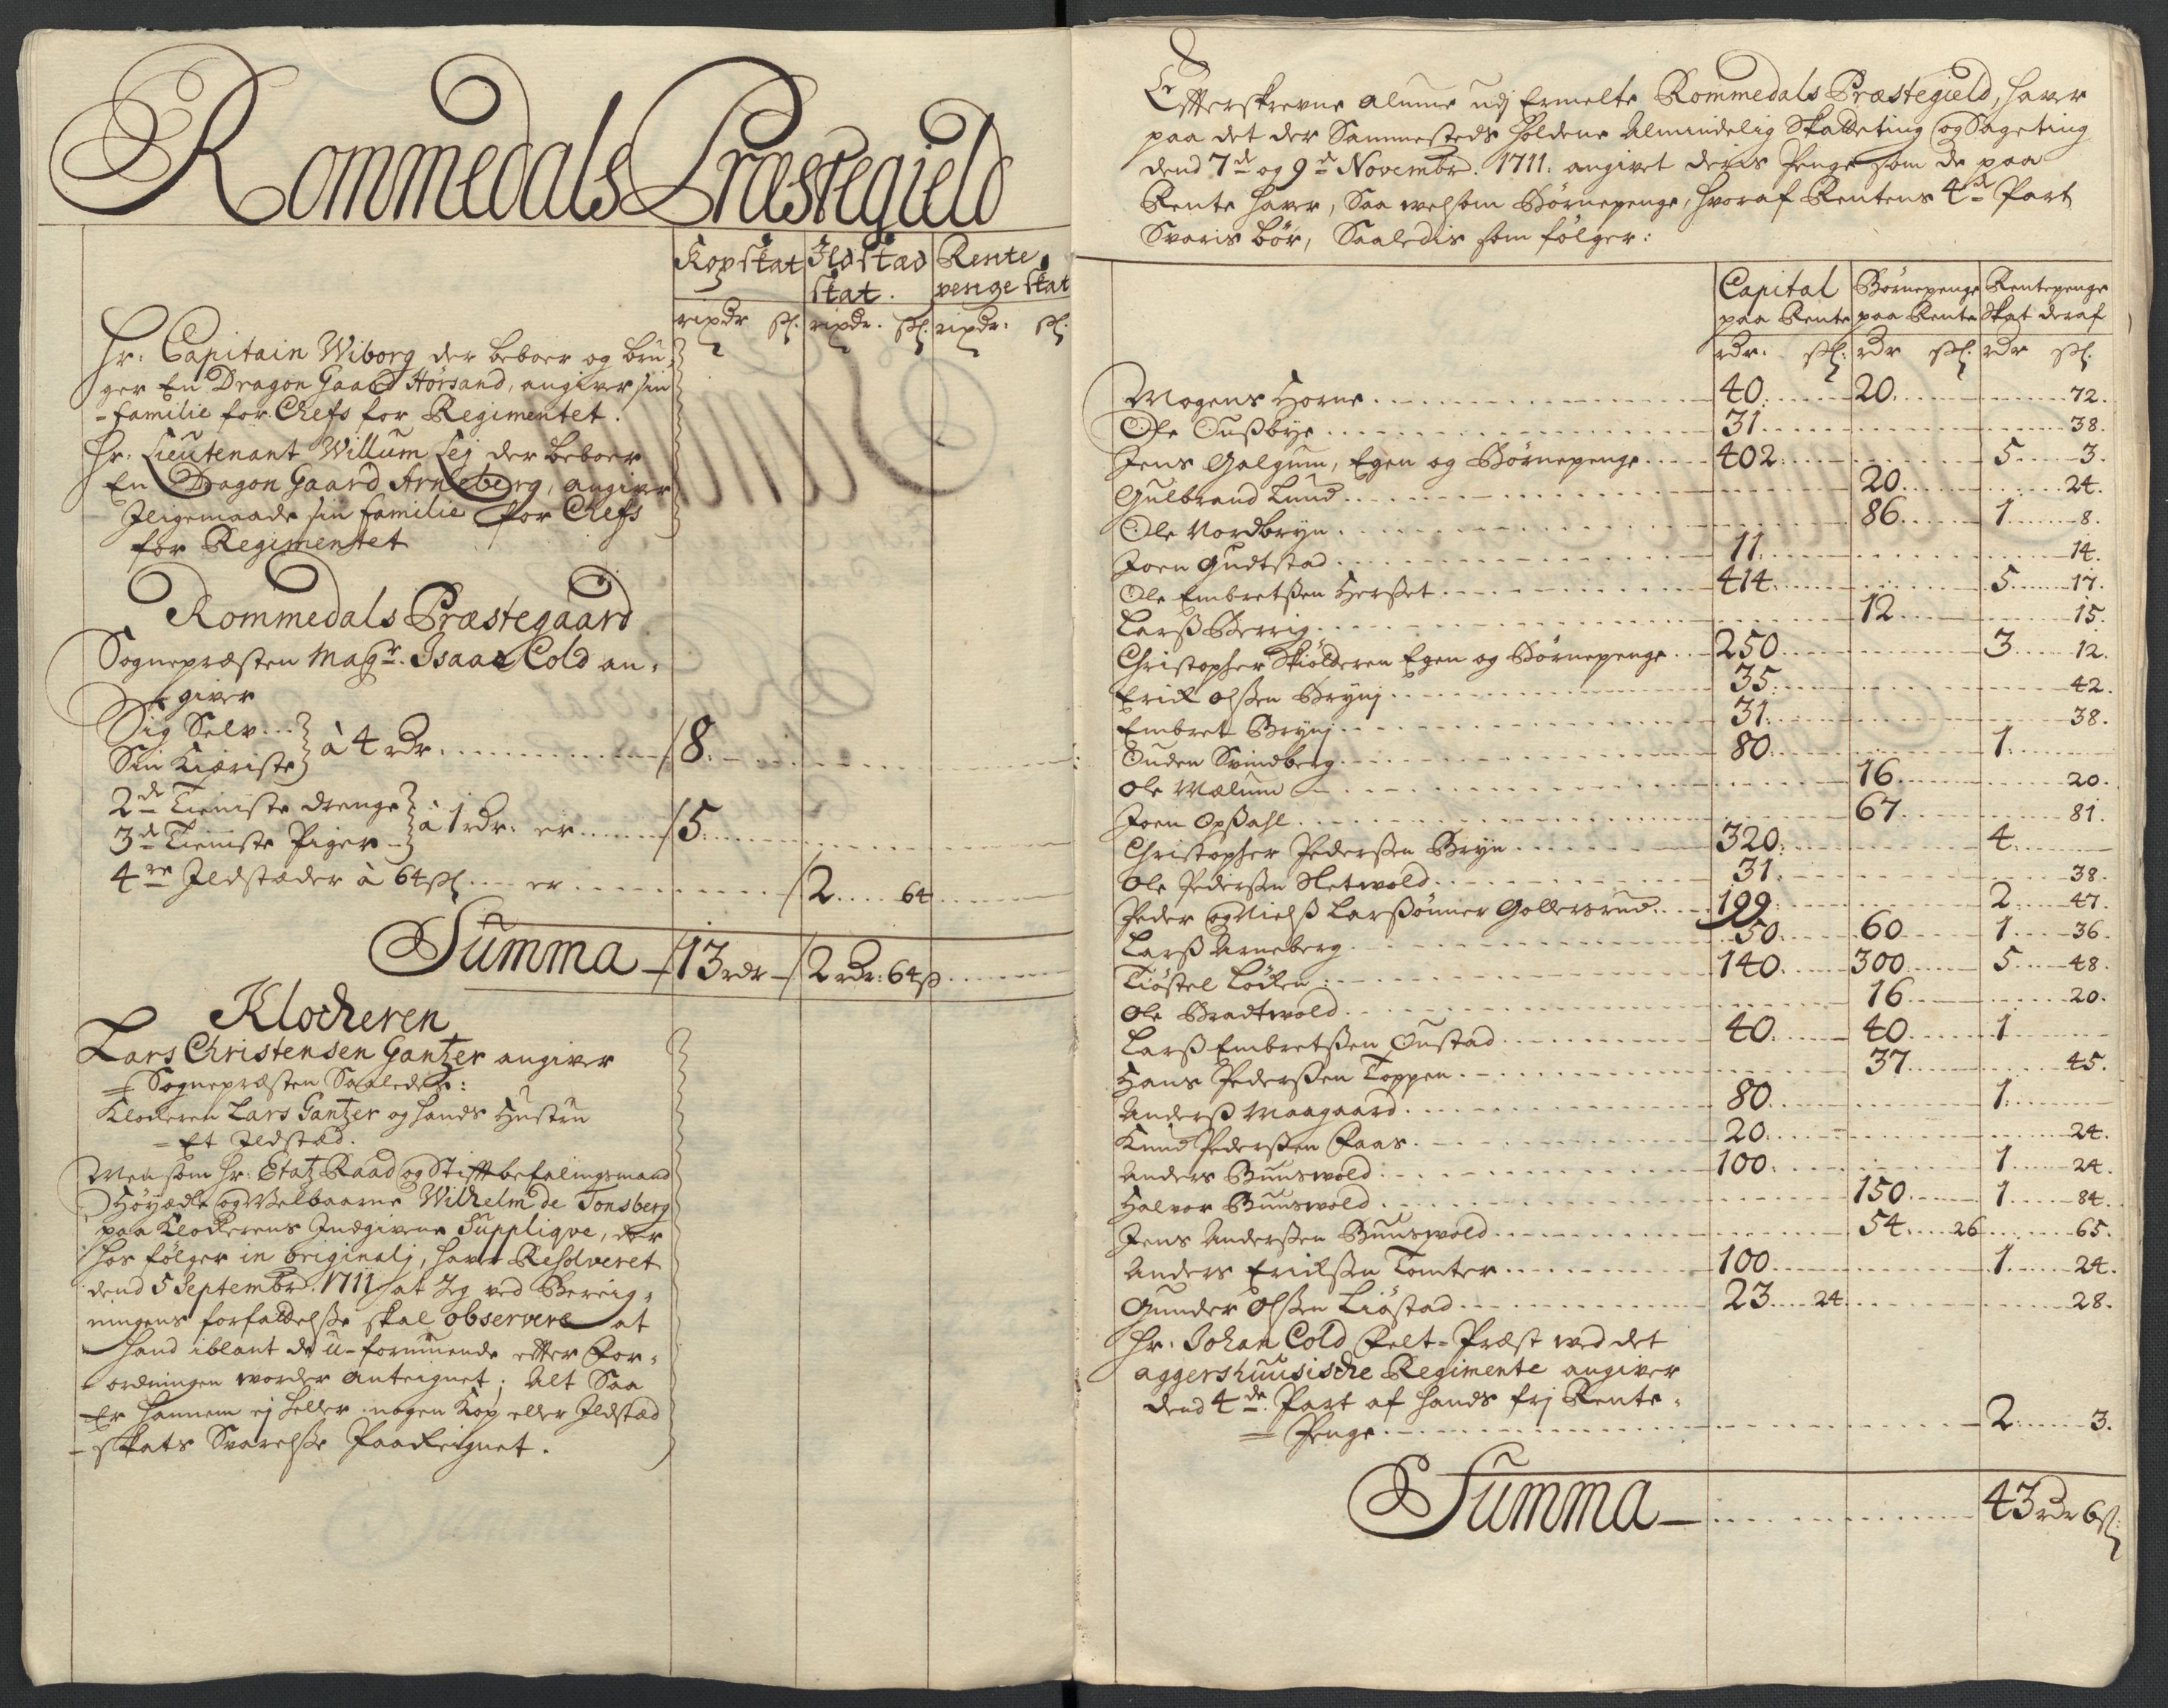 Rommedals Præstegield
Kopskat Ildstad skat. Rente penge skat
rixdr sl: rixdr. sl: rixdr: sl:
Hr: Capitain Wiborg der beboer og bru-
ger En Dragon Gaard Hørsand, angiver sin
familie for Chefs for Regimentet.
Hr. Lieutenant Willum Lej der beboer
En Dragon Gaard Arneberg, angiver
Iligemaade sin familie for Chefs
for Regimentet
Rommedals Præstegaard
Sognepræsten Magr. Isaac Cold an-
giver
Sig Selv...
Sin Kiæriste à 4 rdr. 8.
2de Tieniste drenge
3de Tieniste Piger à 1 rdr. er 5.
4re Ildstæder à 64 sl er 2 64
Summa 13 rdr 2 rdr: 64 s
Klocheren
Lars Christensen Gantzer angiver
Sognepræsten Saaledis:
Klocheren Lars Gantzer og hands Hustru
Et Ildstæd.
Men som Hr. Etatz Raad og Stifftbefalingsmand
Høyædle og Velbaarne Wilhelm de Tonsberg
paa Klocherens Indgivne Supplique, der
hos følger in originalj, haver Resolveret
dend 5 Septembr. 1711 at Jeg ved Bereig-
ningens forfattelse skal observere at
hand iblant de u-formuende effter For-
ordningen worder anteignet; Alt Saa
Er hannem ej heller nogen Kop eller Ildstæd
skats Svarelse Paateignet.
Effterskrevne alume udj Ermelte Rommedals Præstegield, haver
paa det der Sammesteds holdene Almindelig Skatteting og Sageting
dend 7de og 9de Novembr. 1711. angivet deris Penge som de paa
Rente haver, Saa velsom Børnepenge, hvoraf Rentens 4de Part
Svaris bør, Saaledis som følger:
Capital paa Rente Børnepenge paa Rente Rentepenge Skat deraf
rdr. sl: rdr sl: rdr sl.
Mogens Horne 40. 20. 72.
Ole Ousbye 31. 38.
Jens Galgum, Egen og Børnepenge 402. 5 3.
Gulbrand Lund 20. 24.
Ole Nordbryn 86. 1 8.
Joen Gudtstad 11. 14.
Ole Embretßen Herßet 414. 5 17.
Larß Berrig 12 15.
Christopher Skiolderen Egen og Børnepenge 250 3 12.
Erik Olßen Brynj 35. 42.
Embret Brynj 31. 38.
Ouden Svindberg 80. 1.
Ole Mælum 16. 20.
Joen Opßahl 67. 81.
Christopher Pederßen Bryn 320. 4.
Ole Pederßen Sletwold 31. 38.
Peder og Nielß Larßønner Gollerud 199. 2 47.
Larß Arneberg 50. 60 1 36.
Tiøstel Løken 140. 300 5 48.
Ole Bradtwold 16 20.
Larß Embretßen Oustad 40. 40. 1
Hans Pederßen Toppen 37. 45.
Anderß Maagaard 80. 1.
Knud Pederßen Faas 20. 24.
Anders Buuswold 100. 1 24.
Halvor Buuswold 150. 1 84.
Jens Anderßen Buuswold 54. 26 65.
Anders Erikßen Tomter 100. 1 24.
Gunder Olßen Liøstad 23 24 28.
Hr. Johan Cold Felt-Præst ved det
aggershuusische Regimente angiver
dend 4de Part af hands frj Rente-
Penge 2 3.
Summa 43 rdr 6 sl: